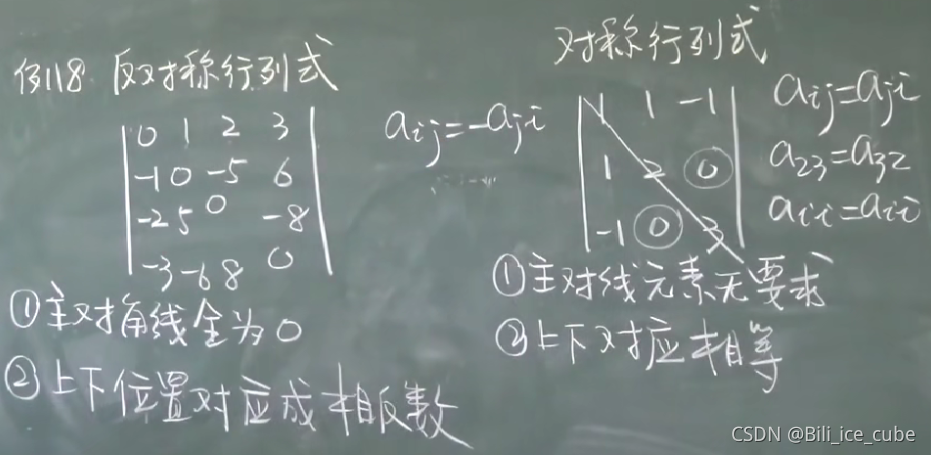 例118 反对称行列式
0 1 2 3
-1 0 -5 6
-2 5 0 -8
-3 -6 8 0
aij=-aji
①主对角线全为0
②上下位置对应成相反数
对称行列式
1 1 -1
1 2 0
-1 0 3
aij=aji
a23=a32
aii=aii
①主对线元素无要求
②上下对应相等
CSDN @Bili_ice_cube